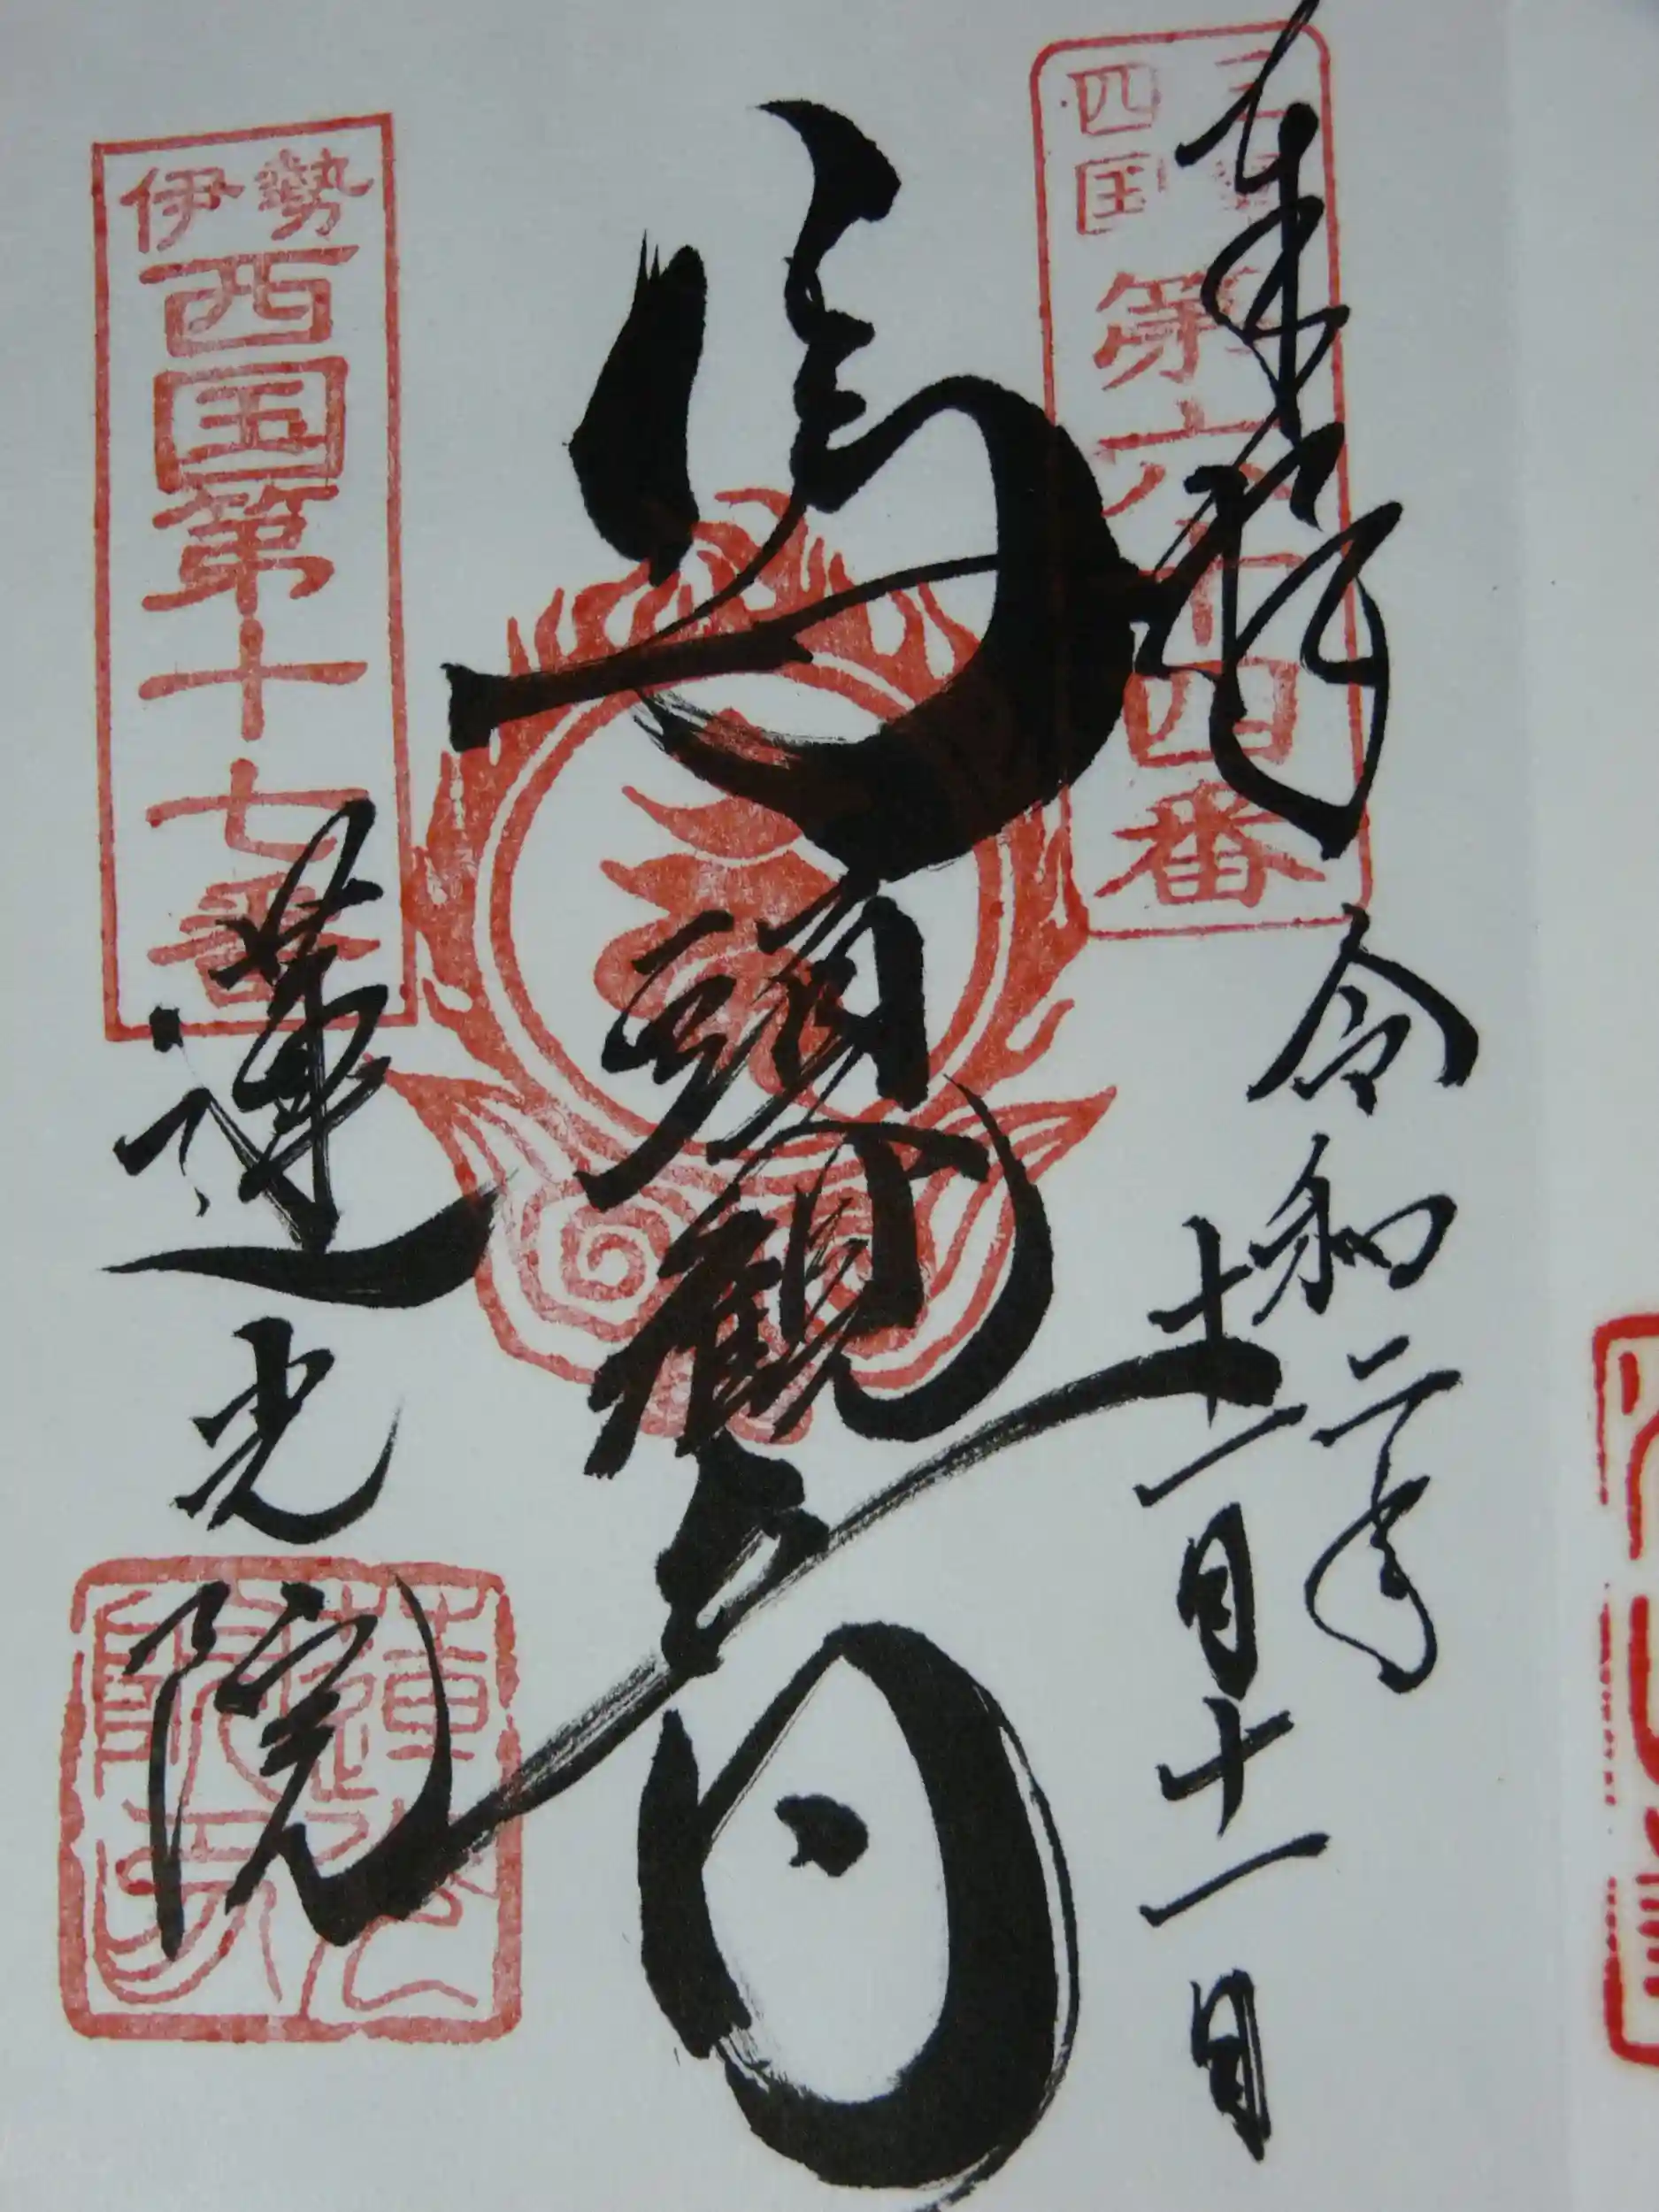 奉拝
令和二年
十一月十一日
四国
第六十四番
馬頭観音
伊勢
西国第十七番
蓮光院